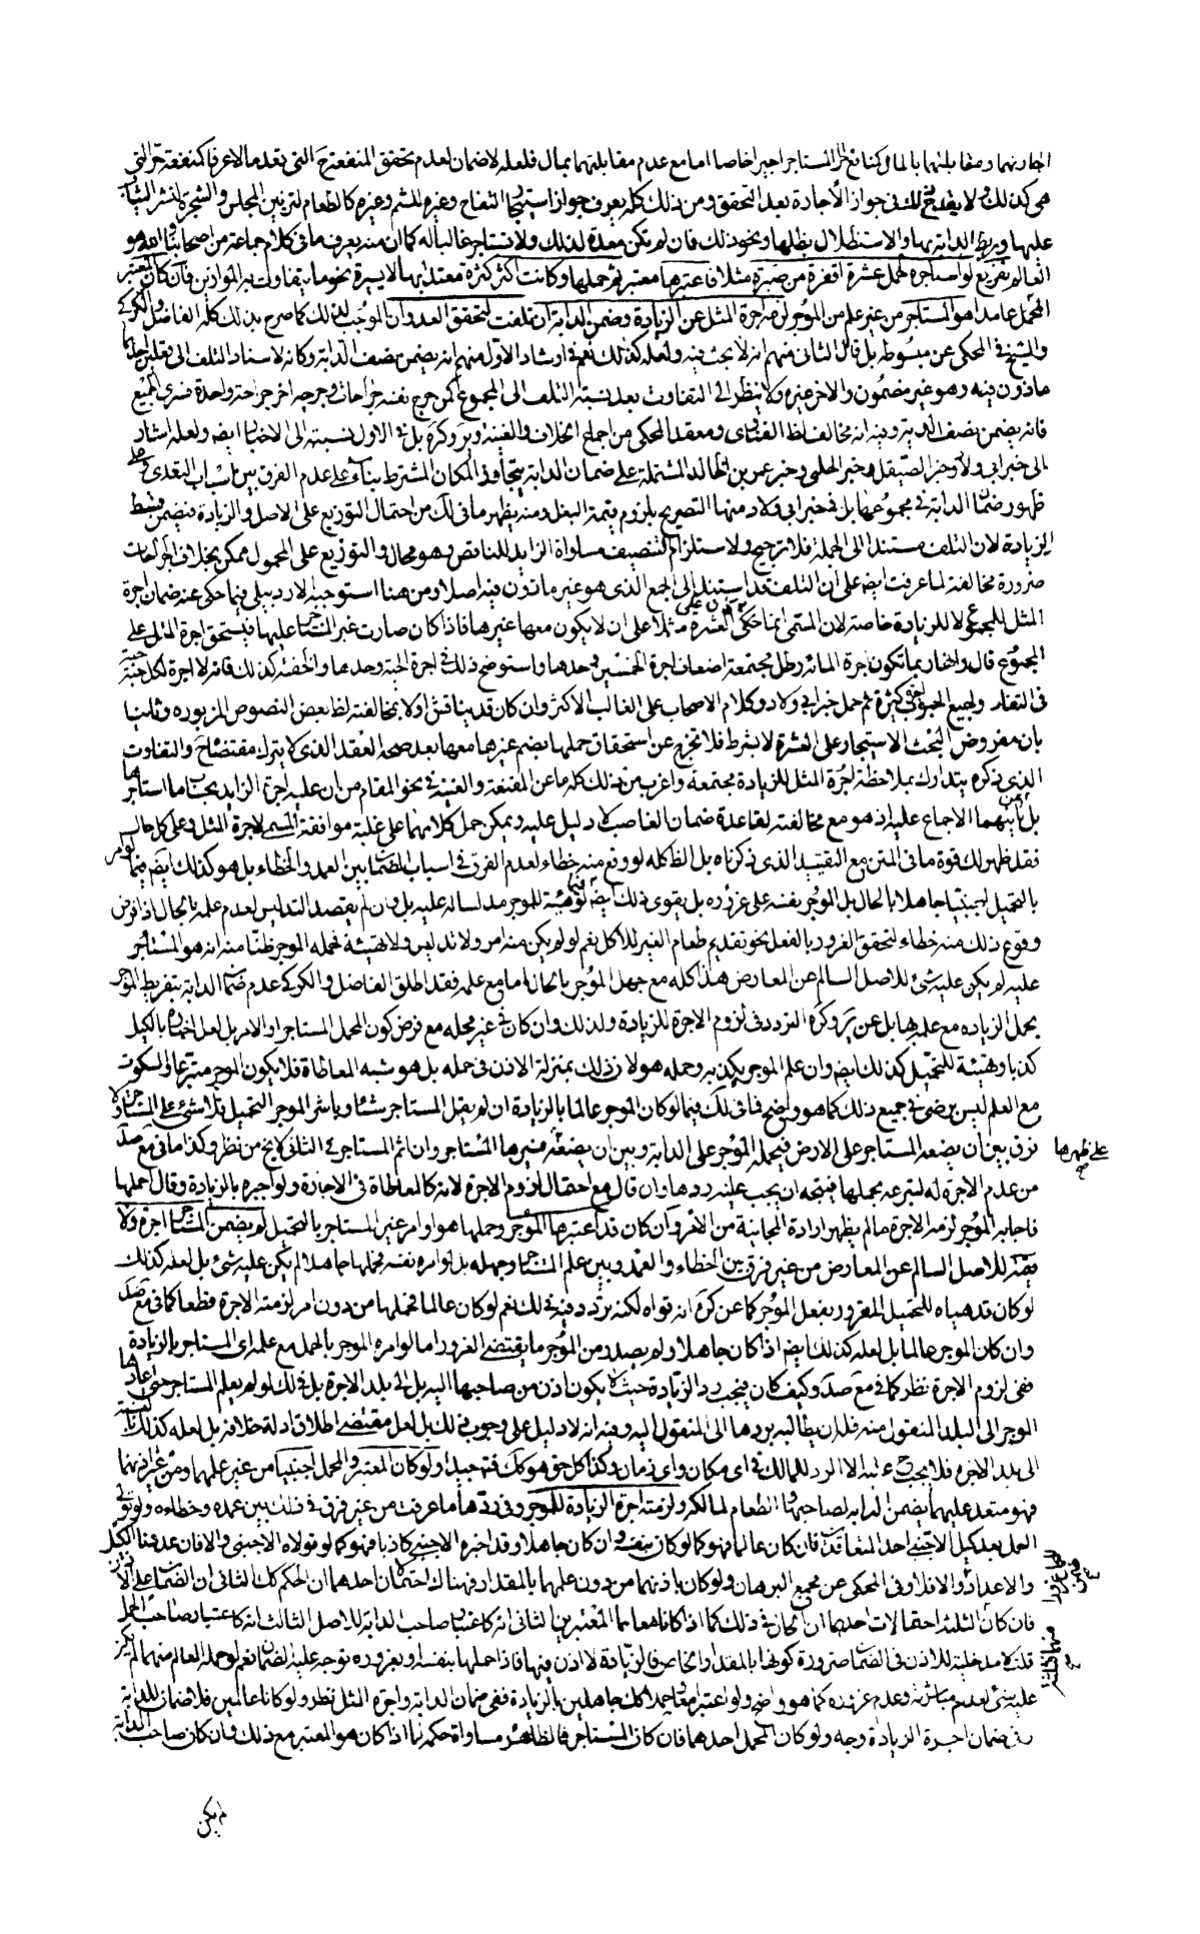 اجارتهما ومقابلتهما بالمال المستاجر اجيرا خاصا اما مع عدم مقابلتهما بمال فلعله لا ضمان لعدم تحقق المنفعة ح التى تعد مالا عرفا كمنفعة حر التى
هى كذلك ولا يقدح ذلك فى جواز الاجارة بعد التحقق ومن ذلك كله يعرف جواز استيجار التفاح وغيره للشم وغيره كالطعام لتزيين المجلس والشجرة لنشر الثياب
عليها وربط الدابة بها والاستظلال بظلها ونحو ذلك فان لم تكن معدة لذلك ولا تستاجر غالبا له كما ان منه يعرف ما فى كلام جماعة من اصحابنا والله هو
العالم تفريع لو استاجره لحمل عشرة اقفزة من صبرة مثلا فاعتبرها معتبر ثم حملها وكانت اكثر كثرة معتدا بها لا يسيرة بنحو ما يتفاوت به الموازين فان كان المعتبر
المحمل عامدا هو المستاجر من غير علم من الموجر لزمه اجرة المثل عن الزيادة وضمن الدابة ان تلفت لتحقق العدوان الموجب لذلك كما صرح بذلك كله الفاضل والكركى
والشيخ فى المحكى عن مبسوطه بل قال الثانى منهم انه لا بحث فيه ولعله كذلك نعم فى ارشاد الاول منهم انه يضمن نصف الدابة وكانه لاسناد التلف الى فعلين احدهما
ماذون فيه وهو غير مضمون والاخر غيره ولا ينظر الى التفاوت بعد نسبة التلف الى المجموع كمن جرح نفسه جراحات وجرحه اخر جراحة واحدة فسرى الجميع
فانه يضمن نصف الدية وفيه انه مخالف لظ الفتاوى ومعقد المحكى من اجماع الخلاف والغنية بل فى الاول نسبته الى الاخبار ايضا ولعله اشار
الى خبر ابى ولاد وخبر الصيقل وخبر الحلبى وخبر عمر بن خالد المشتملة على ضمان الدابة بتجاوز المكان المشترط بناء على عدم الفرق بين اسباب التعدى على
ظهور ضمان الدابة فى مجموعها بل فى خبر ابى ولاد منها التصريح بلزوم قيمة البغل ومنه يظهر ما فى لك من احتمال التوزيع على الاصل والزيادة فيضمن بقسط
الزيادة لان التلف مستند الى الجملة فلا ترجيح ولاستلزام التنصيف مساواة الزايد للناقص وهو محال والتوزيع على المحمول ممكن بخلاف الجراحات
ضرورة مخالفته لما عرفت ايضا على ان التلف قد استند الى الجمع الذى هو غير ماذون فيه اصلا ومن هنا استوجه الاردبيلى فيما حكى عنه ضمان اجرة
المثل للمجموع لا للزيادة خاصة لان المسمى انما كان على العشرة مثلا على ان لا يكون معها غيرها فاذا كان صارت غير المستاجر عليها فيستحق اجرة المثل على
المجموع قال وانه ربما تكون اجرة المائة رطل مجتمعة اضعاف اجرة الخمسين وحدها واستوضح ذلك فى اجرة الحبة وحدها والحفنة كذلك فانه لا اجرة لكل حبة
فى التغار ولجميع الحبوب اجرة كثيرة ثم حمل خبر ابى ولاد وكلام الاصحاب على الغالب الاكثر وان كان قد يناقش اولا بمخالفته لظ بعض النصوص المزبورة وثانيا
بان مفروض البحث الاستيجار على العشرة لا بشرط فلا تخرج عن استحقاق حملها بضم غيرها معها بعد صحة العقد الذى لا يترك مقتضاه ح والتفاوت
الذى ذكره يتدارك بملاحظة اجرة المثل للزيادة مجتمعة واغرب من ذلك كله ما عن المقنعة والغنية فى نحو المقام من ان عليه اجرة الزايد بحساب ما استاجرها
بل عن ثانيهما الاجماع عليه اذ هو مع مخالفته لقاعدة ضمان الغاصب لا دليل عليه ويمكن حمل كلامهما على غلبة موافقة المسمى لاجرة المثل وعلى كل حال
فقد ظهر لك قوة ما فى المتن مع التقييد الذى ذكرناه بل الظ كله لو وقع منه خطاء لعدم الفرق فى اسباب الضمان بين العمد والخطاء بل هو كذلك ايضا فيما لو امر
بالتحميل اجنبيا جاهلا بالحال بل الموجر نفسه على غروره بل يقوى ذلك ايضا لو هيئه للموجر مدلسا له عليه بل وان لم يقصد التدليس لعدم علمه بالحال اذا فرض
وقوع ذلك منه خطاء لتحقق الغرور بالفعل نحو تقديم طعام الغير للاكل نعم لو لم يكن منه امر ولا تدليس ولا تهيئة فحمله الموجر ظنا منه انه هو المستاجر
عليه لم يكن عليه شئ للاصل السالم عن المعارض هذا كله مع جهل الموجر بالحال اما مع علمه فقد اطلق الفاضل والكركى عدم ضمان الدابة بتفريط الموجر
بحمل الزيادة مع علمه بها بل عن التردد فى لزوم الاجرة للزيادة ولذلك وان كان فى غير محله مع فرض كون المحمل المستاجر او الامر بل لعل اخباره بالكيل
كذبا وتهيئة للتحميل كذلك ايضا وان علم الموجر بكذبه وحمله هو لان ذلك بمنزلة الاذن فى حمله بل هو شبه المعاطاة فلا يكون الموجر متبرعا والسكوت
مع العلم ليس برضى فى جميع ذلك كما هو واضح فما فى لك فيما لو كان الموجر عالما بالزيادة ان لم يقل المستاجر شئا وباشر الموجر التحميل فلا شئ على المستاجر ولا
فرق بين ان يضعه المستاجر على الارض فيحمله الموجر على الدابة وبين ان يضعه على ظهرها فيسيرها المستاجر وان اثم المستاجر فى الثانى لا يخ من نظر وكذا ما فى مع صد
من عدم الاجرة له لتبرعه بحملها فيتجه ان يجب عليه ردها وان قال مع احتمال لزوم الاجرة لانه كالمعاطاة فى الاجارة ولو اخبره بالزيادة وقال احملها
فاجابه الموجر لزمه الاجرة ما لم يظهر ارادة المجانية من الامر وان كان قد اعتبرها الموجر وحملها هو او امر غير المستاجر بالتحميل لم يضمن المستاجر اجرة ولا
قيمة للاصل السالم عن المعارض من غير فرق بين الخطاء والعمد وبين علم المستاجر وجهله بل لو امره نفسه فحملها جاهلا لم يكن عليه شئ بل لعله كذلك
لو كان قد هياه للتحميل المغرور بفعل الموجر كما عن انه قواه لكنه تردد فيه فى لك نعم لو كان عالما فحملها من دون امر لزمته الاجرة قطعا كما فى مع صد
وان كان الموجر عالما بل لعله كذلك ايضا اذا كان جاهلا ولم يصدر من الموجر ما يقتضى الغرور اما لو امره الموجر بالحمل مع علمه اى المستاجر بالزيادة
ففى لزوم الاجرة نظر كما فى مع صد وكيف كان فيجب رد الزيادة حيث لا يكون اذن من صاحبها اليه بل الى بلد الاجرة بل فى لك لو لم يعلم المستاجر حتى اعادها
الموجر الى البلد المنقول منه فله ان يطالبه بردها الى المنقول اليه وفيه انه لا دليل على وجوب ذلك بل لعل مقتضى اطلاق ادلة خلافه بل لعله كذلك بالنسبة
الى بلد الاجرة فلا يجب ح عليه الا الرد للمالك فى اى مكان واى زمان وكذا كل حق هو كك فتم جيدا ولو كان المعتبر والمحمل اجنبيا من غير علمهما ومن غير اذنهما
فهو متعد عليهما يضمن الدابة لصاحبها والطعام لمالكه ولزمته اجرة الزيادة للموجر وفى ردها ما عرفت من غير فرق فى ذلك بين عمده وخطاءه ولو تولى
الحمل بعد كيل الاجنبى احد المتعاقدين فان كان عالما فهو كما لو كال بنفسه وان كان جاهلا وقد اخبره الاجنبى كاذبا فهو كما لو تولاه الاجنبى والا فان عد هذا الكيل
والاعداد والا فلا وفى المحكى عن مجمع البرهان ولو كان باذنهما من دون علمهما بالمقدار فهناك احتمالان احدهما ان الحكم كك الثانى ان الضمان على الامر
فان كان الثلثة احتمالات احدها ان الحال فى ذلك كما اذا كانا معا هما المعتبرين الثانى انه كاعتبار صاحب الدابة للاصل الثالث انه كاعتبار صاحب الحمل
قلت لا مدخلية للاذن فى الضمان ضرورة كونها بالمقدار الخاص فالزيادة لا اذن فيها فاذا حملها بنفسه او بغروره توجه عليه الضمان نعم لو حمله العالم منهما لم يكن
عليه شئ لعدم مباشرته وعدم غروره كما هو واضح ولو اعتبرا معا وحملا كك جاهلين بالزيادة ففى ضمان الدابة واجرة المثل نظر ولو كانا عالمين فلا ضمان للدابة
وفى ضمان اجرة الزيادة وجه ولو كان المحمل احدهما فان كان المستاجر فالظاهر مساواة حكمه لما اذا كان هو المعتبر مع ذلك وان كان صاحب الدابة
على ظهرها
لم يكن